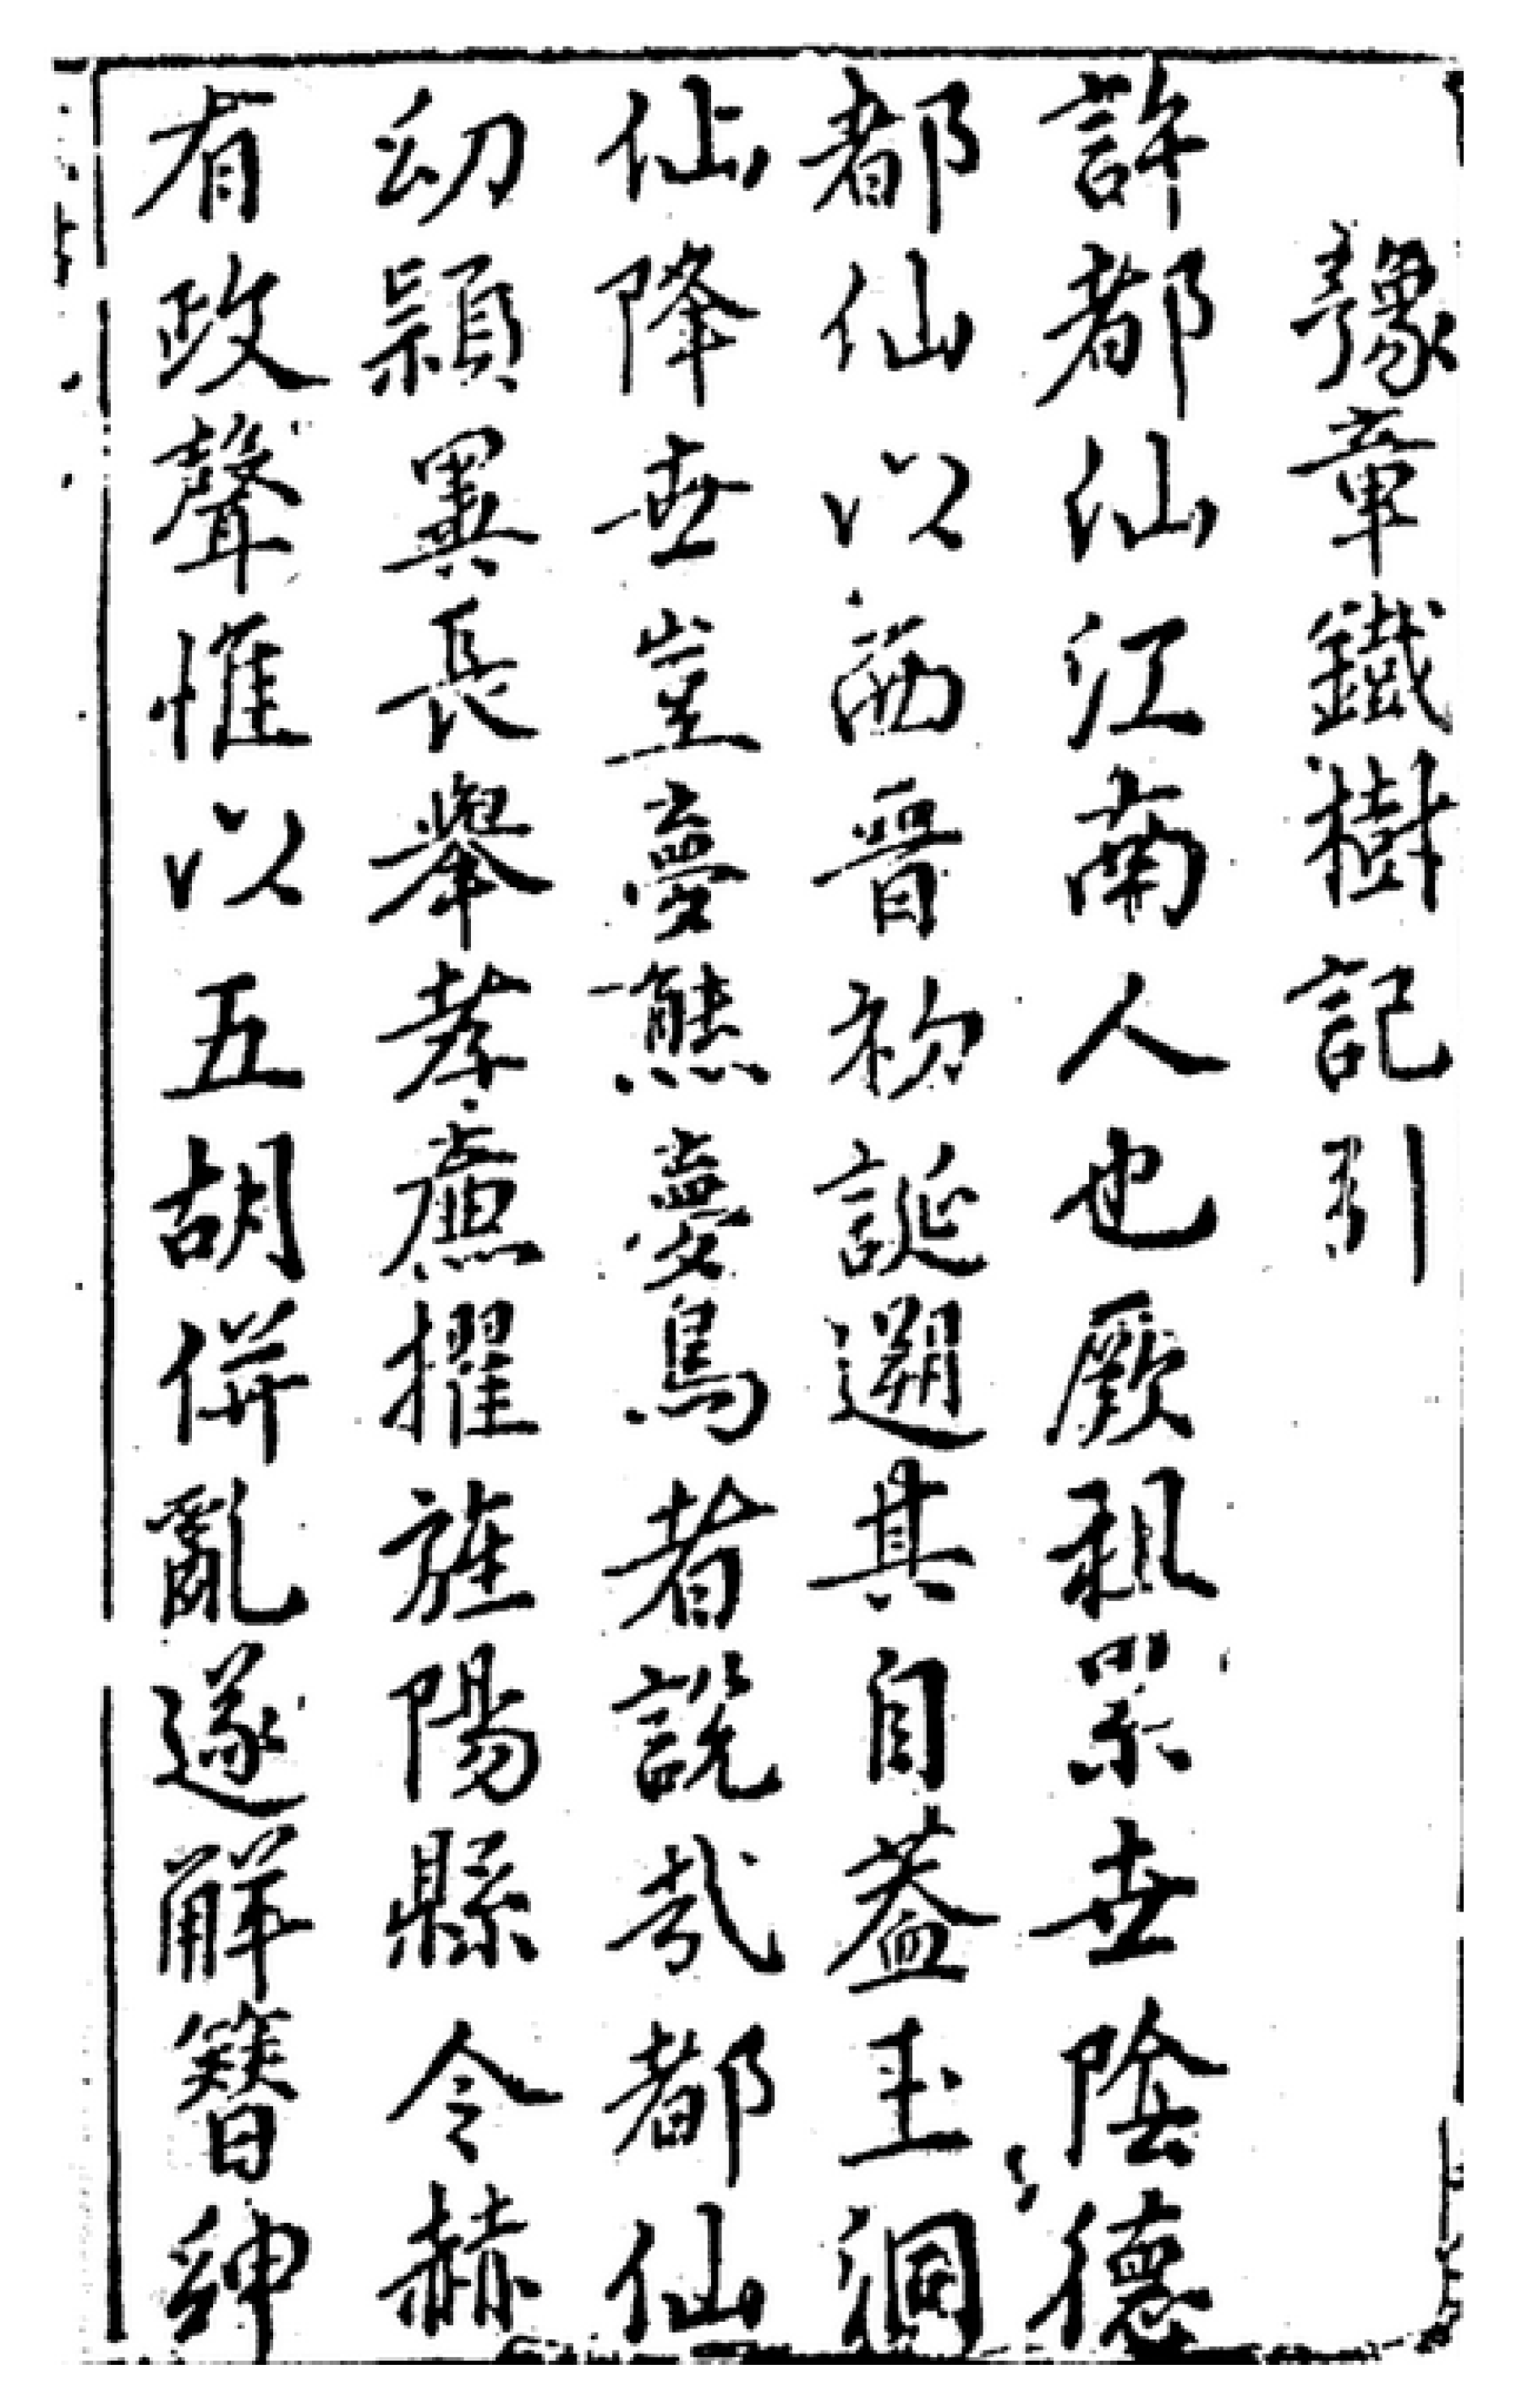 豫章鐵樹記引
許都仙江南人也厥祖累世陰德
都仙以西晉初誕遡其自葢玉洞
仙降世豈夢熊夢鳥者說哉都仙
幼穎異長舉孝廉擢旌陽縣令赫
有政聲惟以五胡併亂遂解簪紳